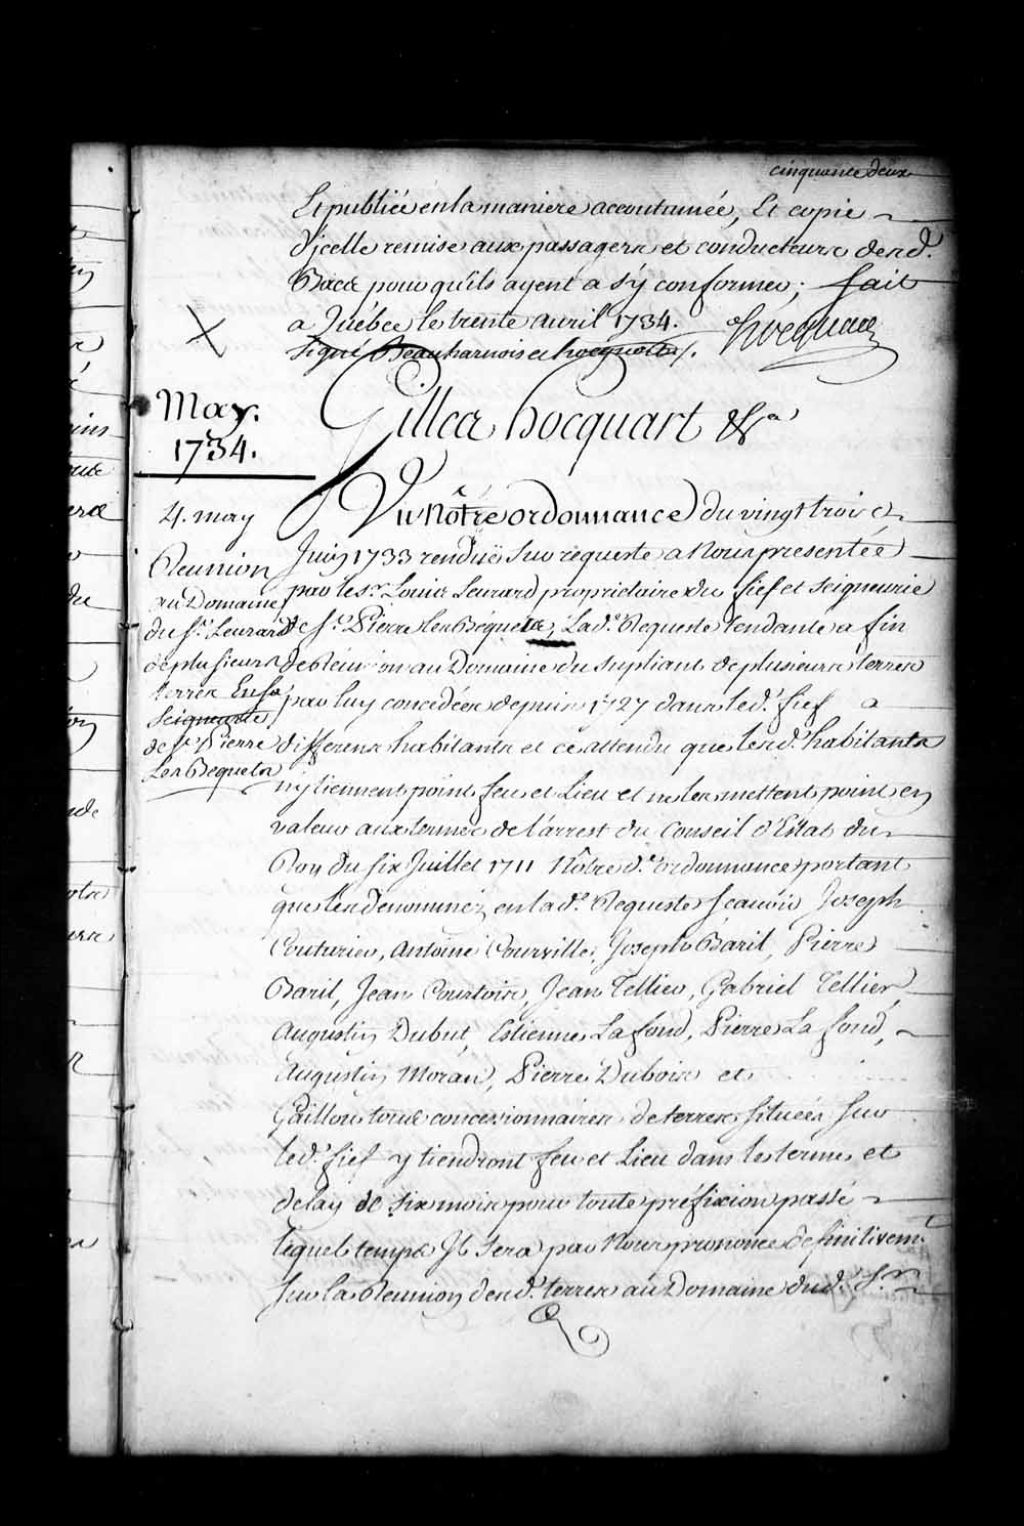 cinquante deux
Et publiée en la maniere accoutumée, Et copie
d'jcelle remise aux passagers et conducteurs desd.
Bacs pour qu'ils ayent a s'y conformer; fait
a Québec le trente avril 1734.
Signé Beauharnois et hocquart /. hocquart
May.
1734.
Gilles hocquart &a
4. may
Reunion
au Domaine
du Sr. Leurard
de plusieurs
terres En sa
Seigneurie
de St. Pierre
Les Bequets
Vu Nôtre ordonnance du vingt trois
Juin 1733 renduë Sur requeste a Nous presentée
par le Sr. Louis Leurard proprietaire du fief et seigneurie
de St. Pierre les Béquets, Lad. Requeste tendante a fin
de Réunion au Domaine du supliant de plusieurs terres
par luy concedées depuis 1727 dans led. fief a
differens habitants et ce attendu que lesd. habitants
n'y tiennent point feu et Lieu et ne les mettent point en
valeur aux termes de l'arrest du Conseil d'Estat du
Roy du six Juillet 1711 Nôtre d. ordonnance portant
que les denommez en lad. Requeste scauoir Joseph
Couturier, Antoine Courville, Joseph Baril, Pierre
Baril, Jean Courtois, Jean Tellier, Gabriel Tellier,
Augustin Dubut, Estienne La fond, Pierre La fond,
Augustin Moran, Pierre Dubois et
Gaillou tous concessionnaires de terres situées sur
led. fief y tiendront feu et Lieu dans le terme et
delay de six mois pour toute prefixion passé
lequel temps Jl sera par Nous prononcé definitivemt
sur la Reunion desd. terres au Domaine dud. Sr.